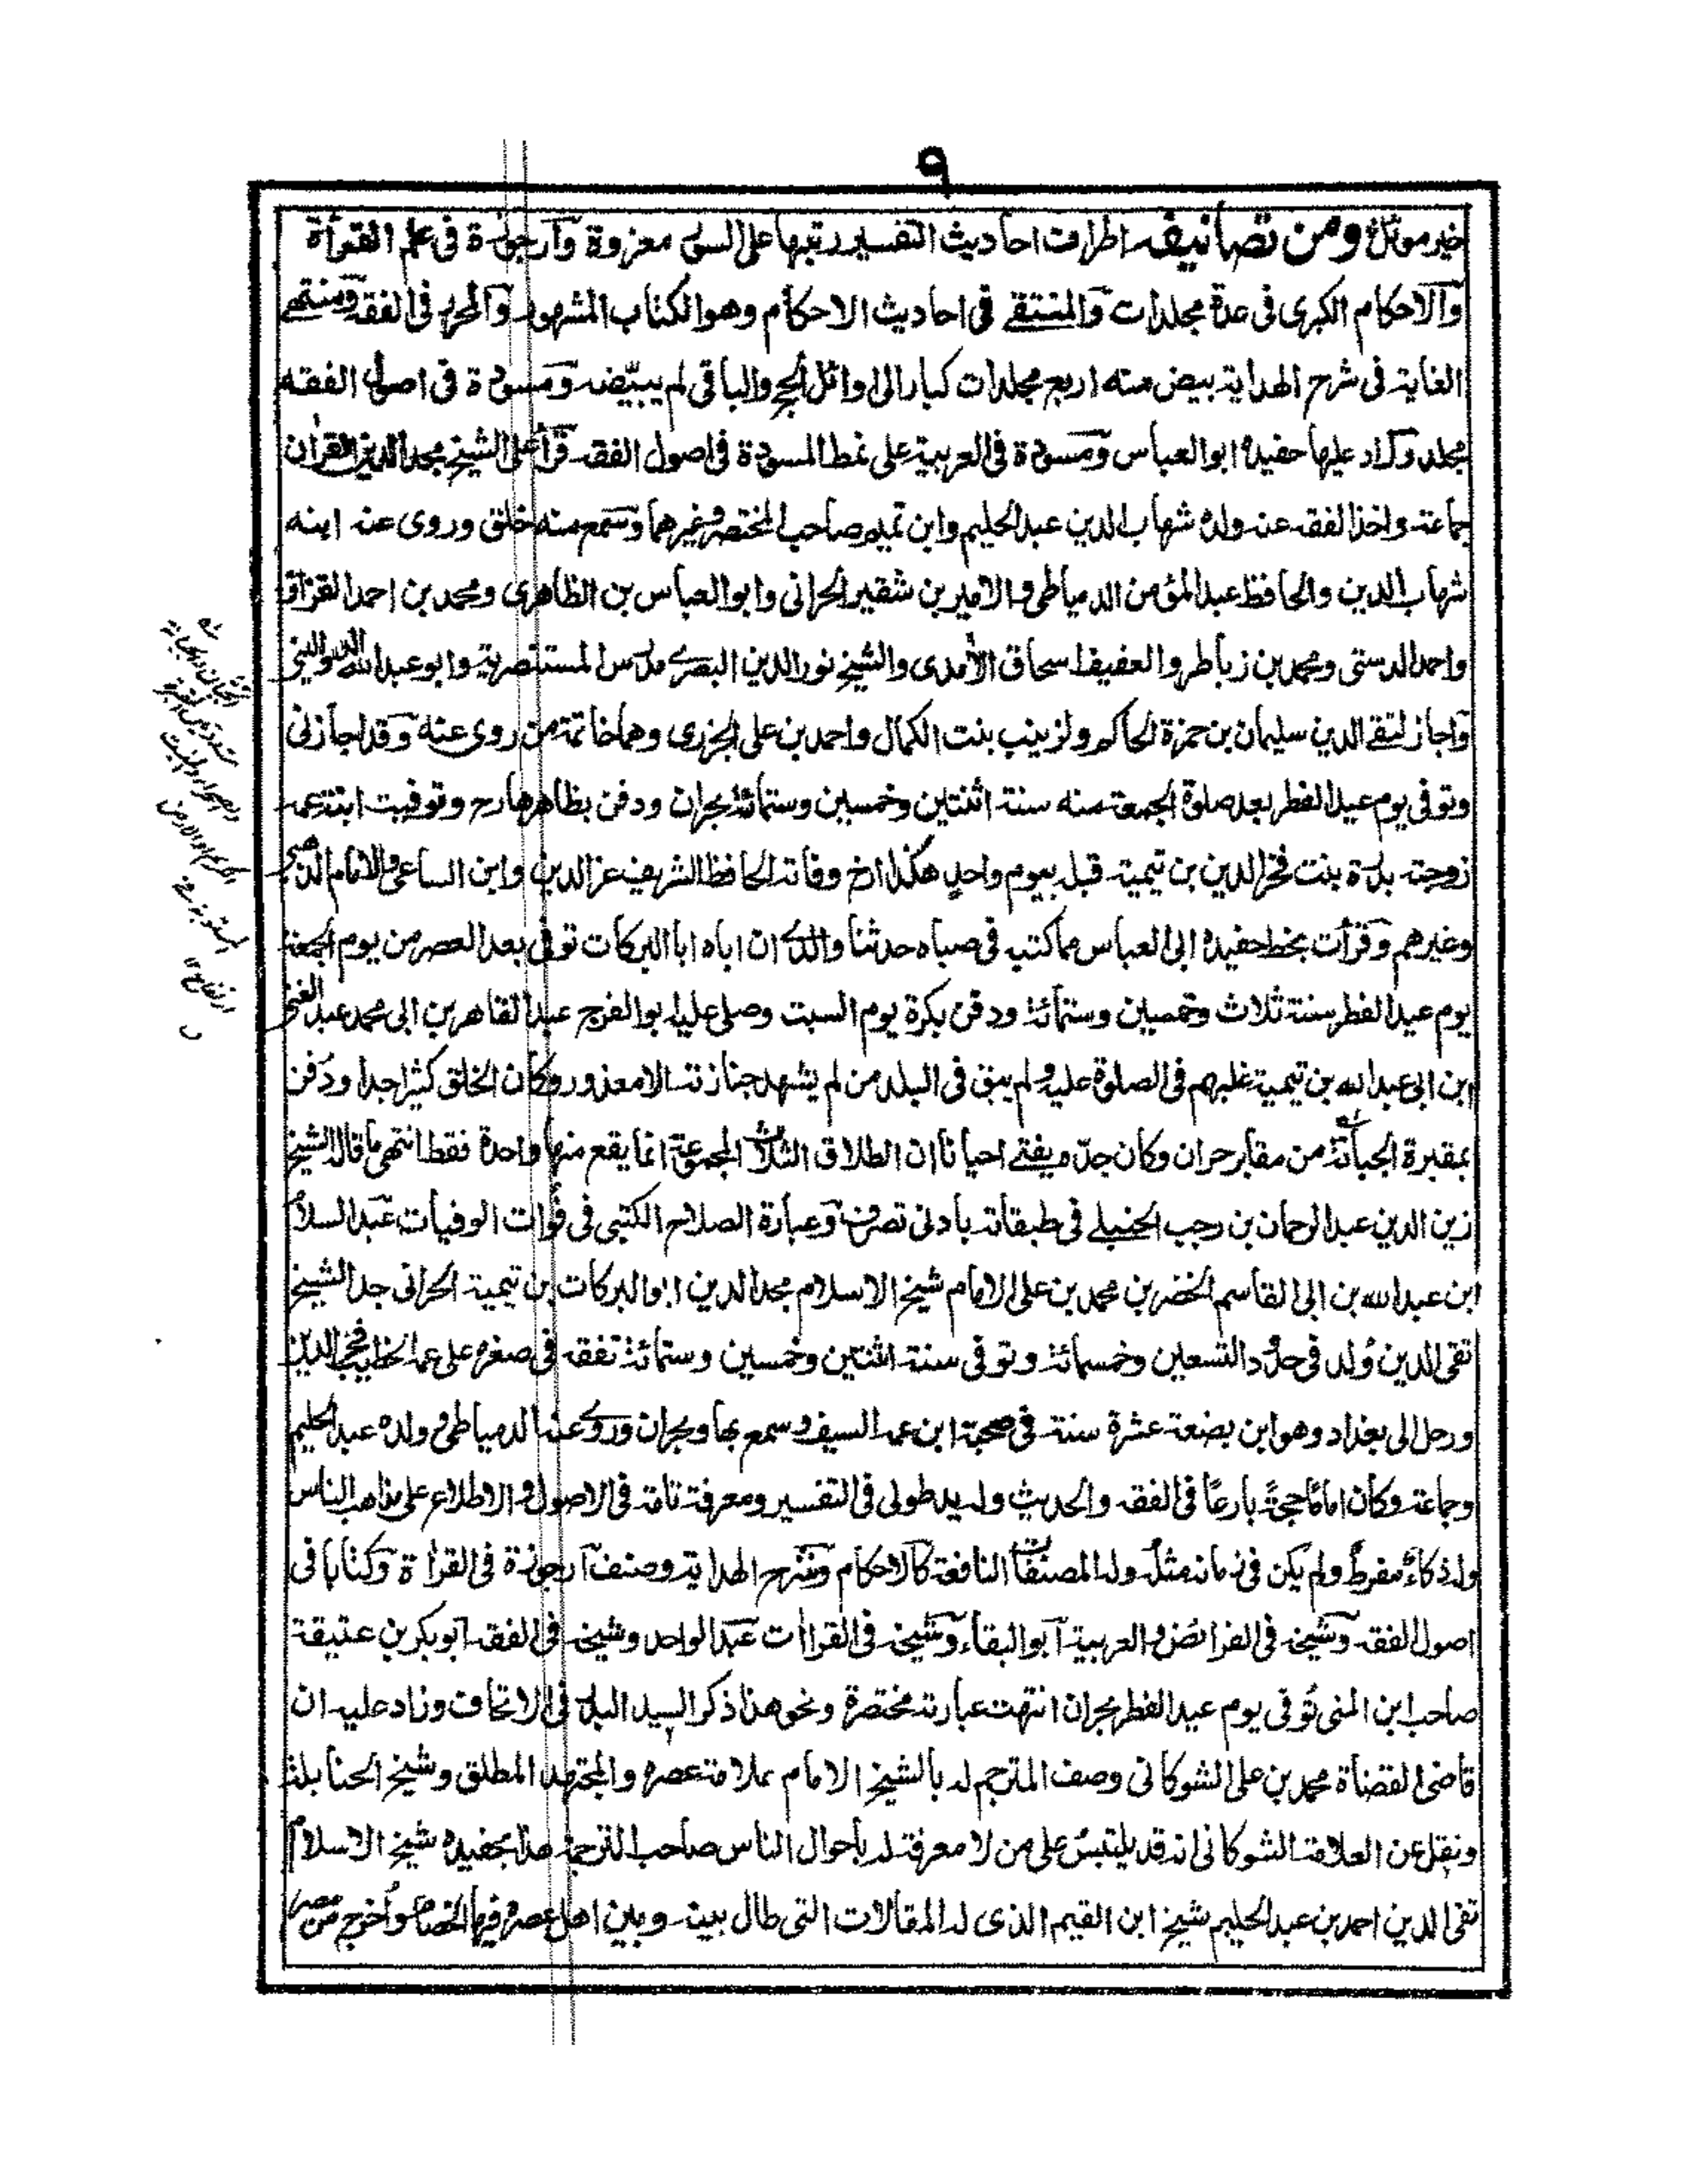 ٩
خير موئل ومن تصانيفه اطراف احاديث التفسير رتبها على السور معزوة وآرجوزة فى علم القرأة
والاحكام الكبرى فى عدة مجلدات والمنتقے فى احاديث الاحكام وهو الكتاب المشهور والمحرر فى الفقه ومنتهے
الغاية فى شرح الهداية بيض منه اربع مجلدات كبار الى اوائل الحج والباقى لم يبيّضه ومسودة فى اصول الفقه
مجلد وزاد عليها حفيده ابو العباس ومسودة فى العربية على نمط المسودة فى اصول الفقه قرأ على الشيخ مجد الدين القران
جماعة واخذ الفقه عنه ولده شهاب الدين عبد الحليم وابن تميم صاحب المختصر وغيرهما وسمع منه خلق وروى عنه ابنه
شهاب الدين والحافظ عبد المؤمن الدمياطى والامير بن شقير الحرانى وابو العباس بن الظاهرى ومحمد بن احمد القزاق
واحمد الدستى ومحمد بن زباطر والعفيف اسحاق الأمدى والشيخ نور الدين البصرے مدرس المستنصرية وابو عبد الله
وآجاز لتقى الدين سليمان بن حمزة الحاكم ولزينب بنت الكمال واحمد بن على الجزرى وهما خاتمة من روى عنه وقد اجازنى
وتوفى يوم عيد الفطر بعد صلوة الجمعة منه سنة اثنتين وخمسين وستمائة بحران ودفن بظاهرها رح وتوفيت ابنة عمه
زوجته بدرة بنت فخر الدين بن تيمية قبله بيوم واحد هكذا ارخ وفاته الحافظ الشريف عز الدين وابن الساعى والامام الذهبى
وغيرهم وقرأت بخط حفيده ابى العباس مما كتبه فى صباه حدثنا والدى ان اباه ابا البركات توفى بعد العصر من يوم الجمعة
يوم عيد الفطر سنة ثلاث وخمسين وستمائة ودفن بكرة يوم السبت وصلى عليه ابو الفرج عبد القاهر بن ابى محمد عبد الغنى
ابن ابى عبد الله بن تيمية غلبهم فى الصلوة عليه ولم يبق فى البلد من لم يشهد جنازته الا معذور وكان الخلق كثيرا جدا ودفن
بمقبرة الجبانة من مقابر حران وكان جدّه يفتے احيانا ان الطلاق الثلاث المجموعة انما يقع منها واحدة فقط انتهى ما قاله الشيخ
زين الدين عبد الرحمان بن رجب الحنبلے فى طبقاته بادنى تصرف وعبارة الصلاح الكتبى فى فوات الوفيات عبد السلام
ابن عبد الله بن ابى القاسم الخضر بن محمد بن على الامام شيخ الاسلام مجد الدين ابو البركات بن تيمية الحرانى جد الشيخ
تقى الدين وُلد فى حدود التسعين وخمسمائة وتوفى سنة اثنتين وخمسين وستمائة تفقه فى صغره على عمه الخطيب فخر الدين
ورحل الى بغداد وهو ابن بضعة عشرة سنة فى صحبة ابن عمه السيف وسمع بها وبحران وروى عنه الدمياطى وولده عبد الحليم
وجماعة وكان اماما حجةً بارعًا فى الفقه والحديث وله يد طولى فى التفسير ومعرفة تامة فى الاصول والاطلاع على مذاهب الناس
وله ذكاءٌ مفرطٌ ولم يكن فى زمانه مثلُه وله المصنفات النافعة كالاحكام وشرح الهداية وصنف آرجوزة فى القراة وكتابا فى
اصول الفقه وشيخه فى الفرائض والعربية آبو البقاء وشيخه فى القراات عبد الواحد وشيخه فى الفقه آبو بكر بن عتيقة
صاحب ابن المنى تُوفى يوم عيد الفطر بحران انتهت عبارته مختصرة ونحو هذا ذكر السيد البدر فى الاتحاف وزاد عليه ان
قاضى القضاة محمد بن على الشوكانى وصف المترجم له بالشيخ الامام علامة عصره والمجتهد المطلق وشيخ الحنابلة
ونقل عن العلامة الشوكانى انه قد يلتبس على من لا معرفة له باحوال الناس صاحب الترجمة هذا بحفيده شيخ الاسلام
تقى الدين احمد بن عبد الحليم شيخ ابن القيم الذى له المقالات التى طال بينه وبين اهل عصره فيها الخصام وأخرج من مصر